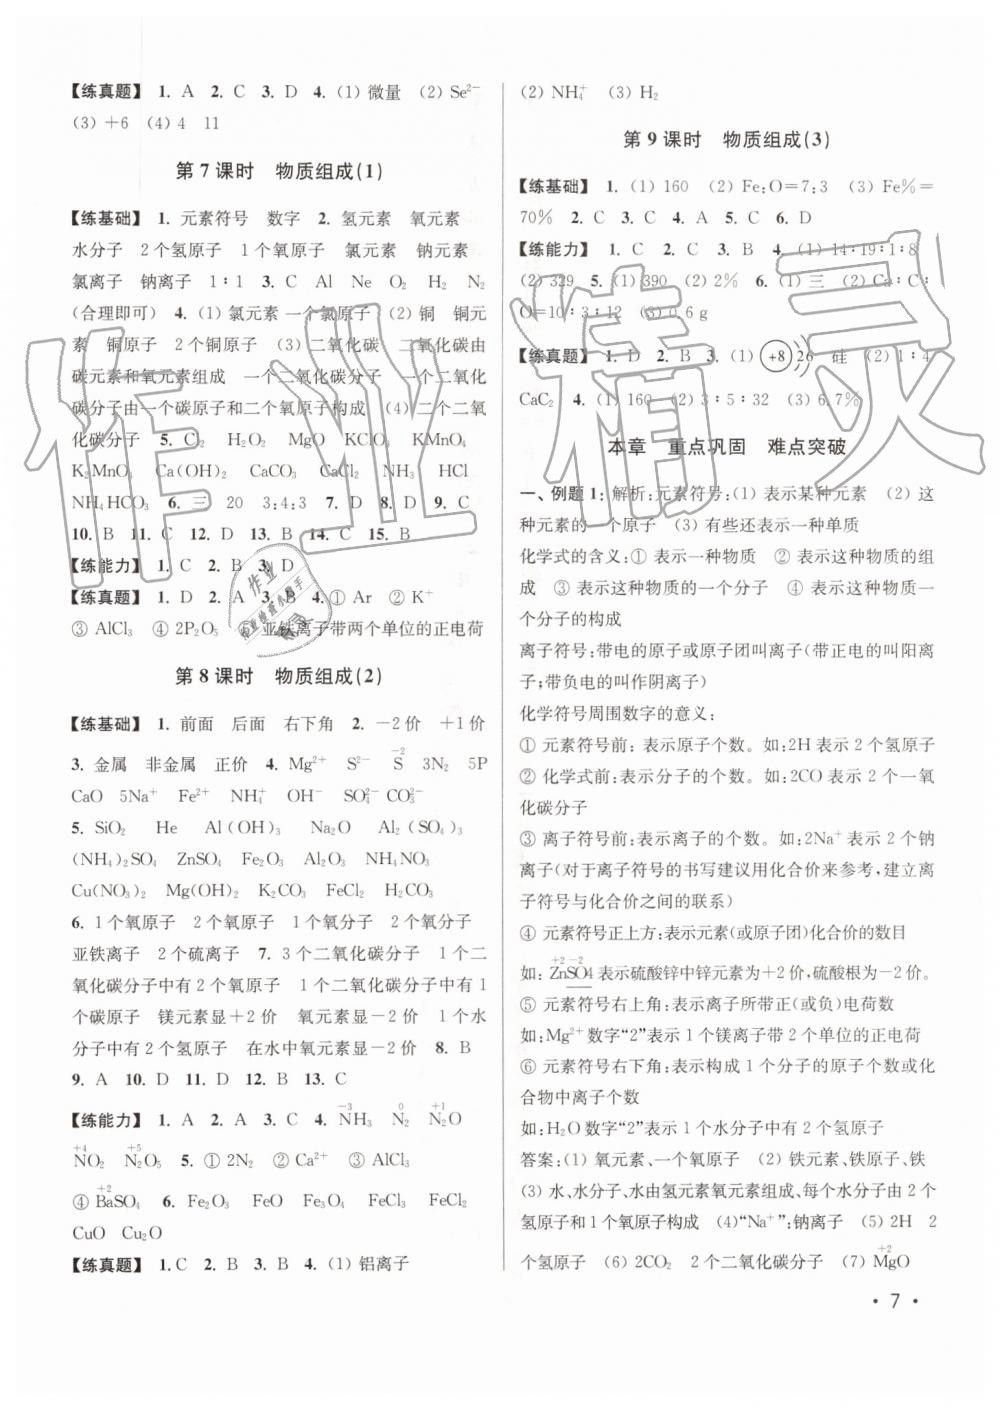 【练真题】 1. A 2. C 3. D 4. (1) 微量 (2) Se²⁻
(3) +6 (4) 4 11
第 7 课时 物质组成(1)
【练基础】 1. 元素符号 数字 2. 氢元素 氧元素
水分子 2个氢原子 1个氧原子 氯元素 钠元素
氯离子 钠离子 1∶1 3. C Al Ne O₂ H₂ N₂
(合理即可) 4. (1) 氯元素 一个氯原子 (2) 铜 铜元
素 铜原子 2个铜原子 (3) 二氧化碳 二氧化碳由
碳元素和氧元素组成 一个二氧化碳分子 一个二氧化
碳分子由一个碳原子和二个氧原子构成 (4) 二个二氧
化碳分子 5. Cl₂ H₂O₂ MgO KClO₃ KMnO₄
K₂MnO₄ Ca(OH)₂ CaCO₃ NH₃ HCl
NH₄HCO₃ 6. 三 20 3∶4∶3 7. D 8. D 9. C
10. B 11. C 12. D 13. C 14. C 15. B
【练能力】 1. C 2. B 3. D
【练真题】 1. D 2. A 3. B 4. ① Ar ② K⁺
③ AlCl₃ ④ 2P₂O₅ ⑤ 亚铁离子带两个单位的正电荷
第 8 课时 物质组成(2)
【练基础】 1. 前面 后面 右下角 2. －2价 ＋1价
3. 金属 非金属 正价 4. Mg²⁺ S²⁻ S(−2) 3N₂ 5P
CaO 5Na⁺ Fe²⁺ NH₄⁺ OH⁻ SO₄²⁻ CO₃²⁻
5. SiO₂ He Al(OH)₃ Na₂O Al₂(SO₄)₃
(NH₄)₂SO₄ ZnSO₄ Fe₂O₃ Al₂O₃ NH₄NO₃
Cu(NO₃)₂ Mg(OH)₂ K₂CO₃ FeCl₂ H₂CO₃
6. 1个氧原子 2个氧原子 1个氧分子 2个氧分子
亚铁离子 2个硫离子 7. 3个二氧化碳分子 1个二
氧化碳分子中有2个氧原子 1个二氧化碳分子中有1
个碳原子 镁元素显＋2价 氧元素显－2价 1个水
分子中有2个氢原子 在水中氧元素显－2价 8. B
9. A 10. D 11. D 12. B 13. C
【练能力】 1. A 2. A 3. C 4. N(−3)H₃ N(0)₂ N(+1)₂O
N(+4)O₂ N(+5)₂O₅ 5. ① 2N₂ ② Ca²⁺ ③ AlCl₃
④ Ba(+2)SO₄ 6. Fe₂O₃ FeO Fe₃O₄ FeCl₃ FeCl₂
CuO Cu₂O
【练真题】 1. C 2. B 3. B 4. (1) 铝离子
(2) NH₄⁺ (3) H₂
第 9 课时 物质组成(3)
【练基础】 1. (1) 160 (2) Fe∶O＝7∶3 (3) Fe％＝
70％ 2. C 3. C 4. A 5. C 6. D
【练能力】 1. C 2. C 3. B 4. (1) 14∶19∶1∶8
(2) 329 5. (1) 390 (2) 2％ 6. (1) 三 (2) Ca∶C∶
O＝10∶3∶12 (3) 0.6 g
【练真题】 1. D 2. B 3. (1) +8 2 6 硅 (2) 1∶4
CaC₂ 4. (1) 160 (2) 3∶5∶32 (3) 6.7％
本章 重点巩固 难点突破
一、例题1:解析:元素符号:(1) 表示某种元素 (2) 这
种元素的一个原子 (3) 有些还表示一种单质
化学式的含义:① 表示一种物质 ② 表示这种物质的组
成 ③ 表示这种物质的一个分子 ④ 表示这种物质的
一个分子的构成
离子符号:带电的原子或原子团叫离子(带正电的叫阳离
子;带负电的叫作阴离子)
化学符号周围数字的意义:
① 元素符号前: 表示原子个数。如:2H表示2个氢原子
② 化学式前:表示分子的个数。如:2CO表示2个一氧
化碳分子
③ 离子符号前:表示离子的个数。如:2Na⁺表示2个钠
离子(对于离子符号的书写建议用化合价来参考,建立离
子符号与化合价之间的联系)
④ 元素符号正上方:表示元素(或原子团)化合价的数目
如: Zn(+2)SO₄(−2)表示硫酸锌中锌元素为＋2价,硫酸根为－2价。
⑤ 元素符号右上角:表示离子所带正(或负)电荷数
如:Mg²⁺数字“2”表示1个镁离子带2个单位的正电荷
⑥ 元素符号右下角:表示构成1个分子的原子个数或化
合物中离子个数
如:H₂O数字“2”表示1个水分子中有2个氢原子
答案:(1) 氧元素、一个氧原子 (2) 铁元素、铁原子、铁
(3) 水、水分子、水由氢元素氧元素组成、每个水分子由2个
氢原子和1个氧原子构成 (4)“Na⁺”:钠离子 (5) 2H 2
个氢原子 (6) 2CO₂ 2个二氧化碳分子 (7) Mg(+2)O
• 7 •
作业精灵